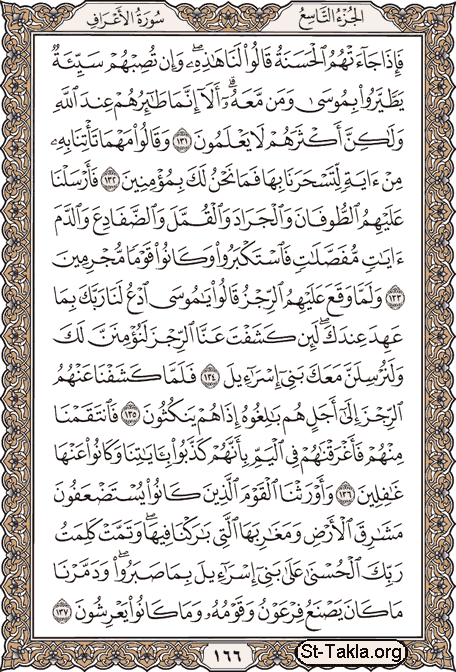 الجزء التاسع
سورة الأعراف
فَإِذَا جَآءَتْهُمُ ٱلْحَسَنَةُ قَالُوا۟ لَنَا هَٰذِهِۦ ۖ وَإِن تُصِبْهُمْ سَيِّئَةٌ
يَطَّيَّرُوا۟ بِمُوسَىٰ وَمَن مَّعَهُۥٓ ۗ أَلَآ إِنَّمَا طَٰٓئِرُهُمْ عِندَ ٱللَّهِ
وَلَٰكِنَّ أَكْثَرَهُمْ لَا يَعْلَمُونَ ١٣١ وَقَالُوا۟ مَهْمَا تَأْتِنَا بِهِۦ
مِنْ ءَايَةٍ لِّتَسْحَرَنَا بِهَا فَمَا نَحْنُ لَكَ بِمُؤْمِنِينَ ١٣٢ فَأَرْسَلْنَا
عَلَيْهِمُ ٱلطُّوفَانَ وَٱلْجَرَادَ وَٱلْقُمَّلَ وَٱلضَّفَادِعَ وَٱلدَّمَ
ءَايَٰتٍ مُّفَصَّلَٰتٍ فَٱسْتَكْبَرُوا۟ وَكَانُوا۟ قَوْمًا مُّجْرِمِينَ
١٣٣ وَلَمَّا وَقَعَ عَلَيْهِمُ ٱلرِّجْزُ قَالُوا۟ يَٰمُوسَى ٱدْعُ لَنَا رَبَّكَ بِمَا
عَهِدَ عِندَكَ ۖ لَئِن كَشَفْتَ عَنَّا ٱلرِّجْزَ لَنُؤْمِنَنَّ لَكَ
وَلَنُرْسِلَنَّ مَعَكَ بَنِىٓ إِسْرَٰٓءِيلَ ١٣٤ فَلَمَّا كَشَفْنَا عَنْهُمُ
ٱلرِّجْزَ إِلَىٰٓ أَجَلٍ هُم بَٰلِغُوهُ إِذَا هُمْ يَنكُثُونَ ١٣٥ فَٱنتَقَمْنَا
مِنْهُمْ فَأَغْرَقْنَٰهُمْ فِى ٱلْيَمِّ بِأَنَّهُمْ كَذَّبُوا۟ بِـَٔايَٰتِنَا وَكَانُوا۟ عَنْهَا
غَٰفِلِينَ ١٣٦ وَأَوْرَثْنَا ٱلْقَوْمَ ٱلَّذِينَ كَانُوا۟ يُسْتَضْعَفُونَ
مَشَٰرِقَ ٱلْأَرْضِ وَمَغَٰرِبَهَا ٱلَّتِى بَٰرَكْنَا فِيهَا ۖ وَتَمَّتْ كَلِمَتُ
رَبِّكَ ٱلْحُسْنَىٰ عَلَىٰ بَنِىٓ إِسْرَٰٓءِيلَ بِمَا صَبَرُوا۟ ۖ وَدَمَّرْنَا
مَا كَانَ يَصْنَعُ فِرْعَوْنُ وَقَوْمُهُۥ وَمَا كَانُوا۟ يَعْرِشُونَ ١٣٧
١٦٦
St-Takla.org